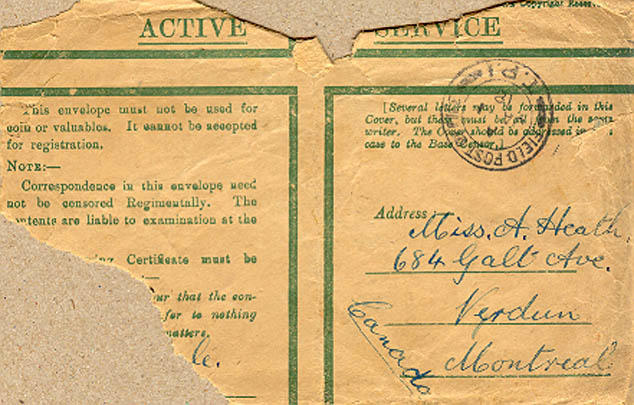 Copyright
ACTIVE SERVICE
This envelope must not be used for
coin or valuables. It cannot be accepted
for registration.
NOTE:—
Correspondence in this envelope need
not be censored Regimentally. The
contents are liable to examination at the
Certificate must be
that the con-
fer to nothing
matters.
[Several letters may be forwarded in this
Cover, but these must be all from the same
writer. The Cover should be addressed in
case to the Base Censor.]
FIELD POST
Address:
Miss. A. Heath.
684 Galt Ave.
Verdun
Montreal
Canada